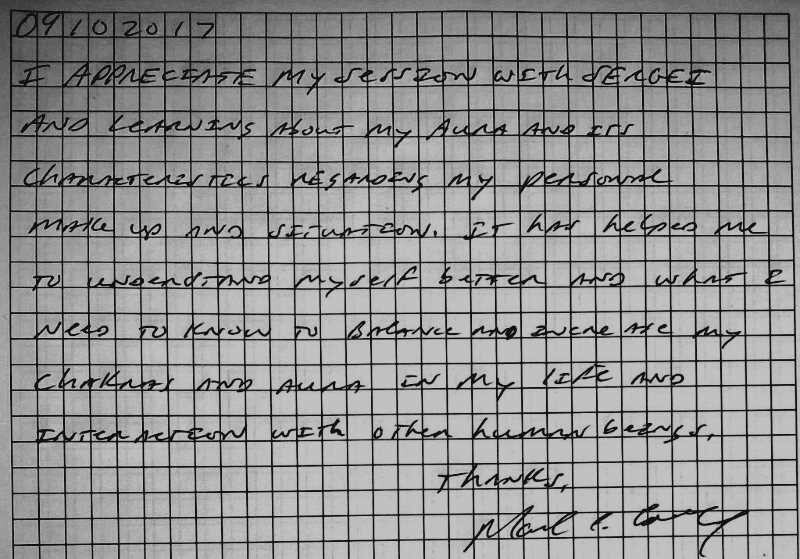 09102017
I APPRECIATE MY SESSION WITH SERGEI
AND LEARNING ABOUT MY AURA AND ITS
CHARACTERISTICS REGARDING MY PERSONAL
MAKE UP AND SITUATION. IT HAS HELPED ME
TO UNDERSTAND MYSELF BETTER AND WHAT I
NEED TO KNOW TO BALANCE AND INCREASE MY
CHAKRAS AND AURA IN MY LIFE AND
INTERACTION WITH OTHER HUMAN BEINGS.
THANKS,